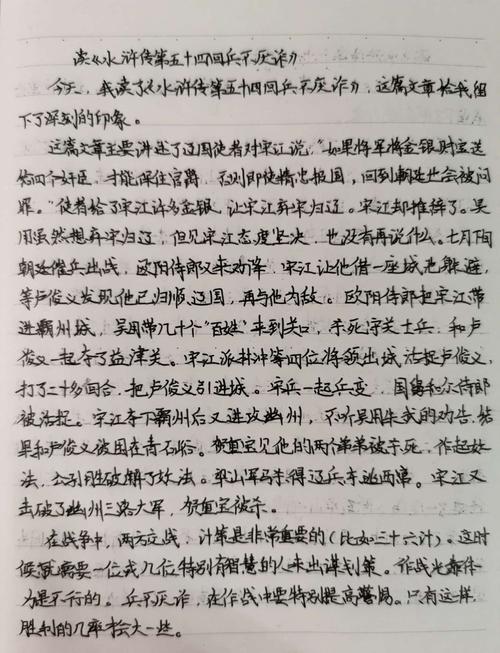 读《水浒传第五十四回兵不厌诈》
今天，我读了《水浒传第五十四回兵不厌诈》，这篇文章给我留
下了深刻的印象。
这篇文章主要讲述了辽国使者对宋江说："如果将军将金银财宝送
给四个奸臣，才能保住官爵，否则即使精忠报国，回到朝廷也会被问
罪。"使者给了宋江许多金银，让宋江弃宋归辽。宋江却推辞了。吴
用虽然想弃宋归辽，但见宋江态度坚决，也没有再说什么。七月下旬
朝廷催兵出战，欧阳侍郎又来劝降，宋江让他借一座城池躲避，
等卢俊义发现他已归顺辽国，再与他为敌。欧阳侍郎把宋江带
进霸州城，吴用带几十个"百姓"来到关口，杀死守关士兵，和卢
俊义一起夺了益津关。宋江派林冲等四位将领出城活捉卢俊义，
打了二十多回合，把卢俊义引进城。宋兵一起兵变，国舅和尔侍郎
被活捉。宋江夺下霸州后又进攻幽州，不听吴用朱武的劝告，结
果和卢俊义被困在青石峪。贺重宝见他的两个弟弟被杀死，作起妖
法，公孙胜破解了妖法。梁山军马杀得辽兵东逃西窜。宋江又
击破了幽州三路大军，贺重宝被杀。
在战争中，两方交战，计策是非常重要的（比如三十六计）。这时
候就需要一位或几位特别有智慧的人来出谋划策。作战光靠体
为是不行的。兵不厌诈，在作战中要特别提高警惕。只有这样，
胜利的几率才会大一些。